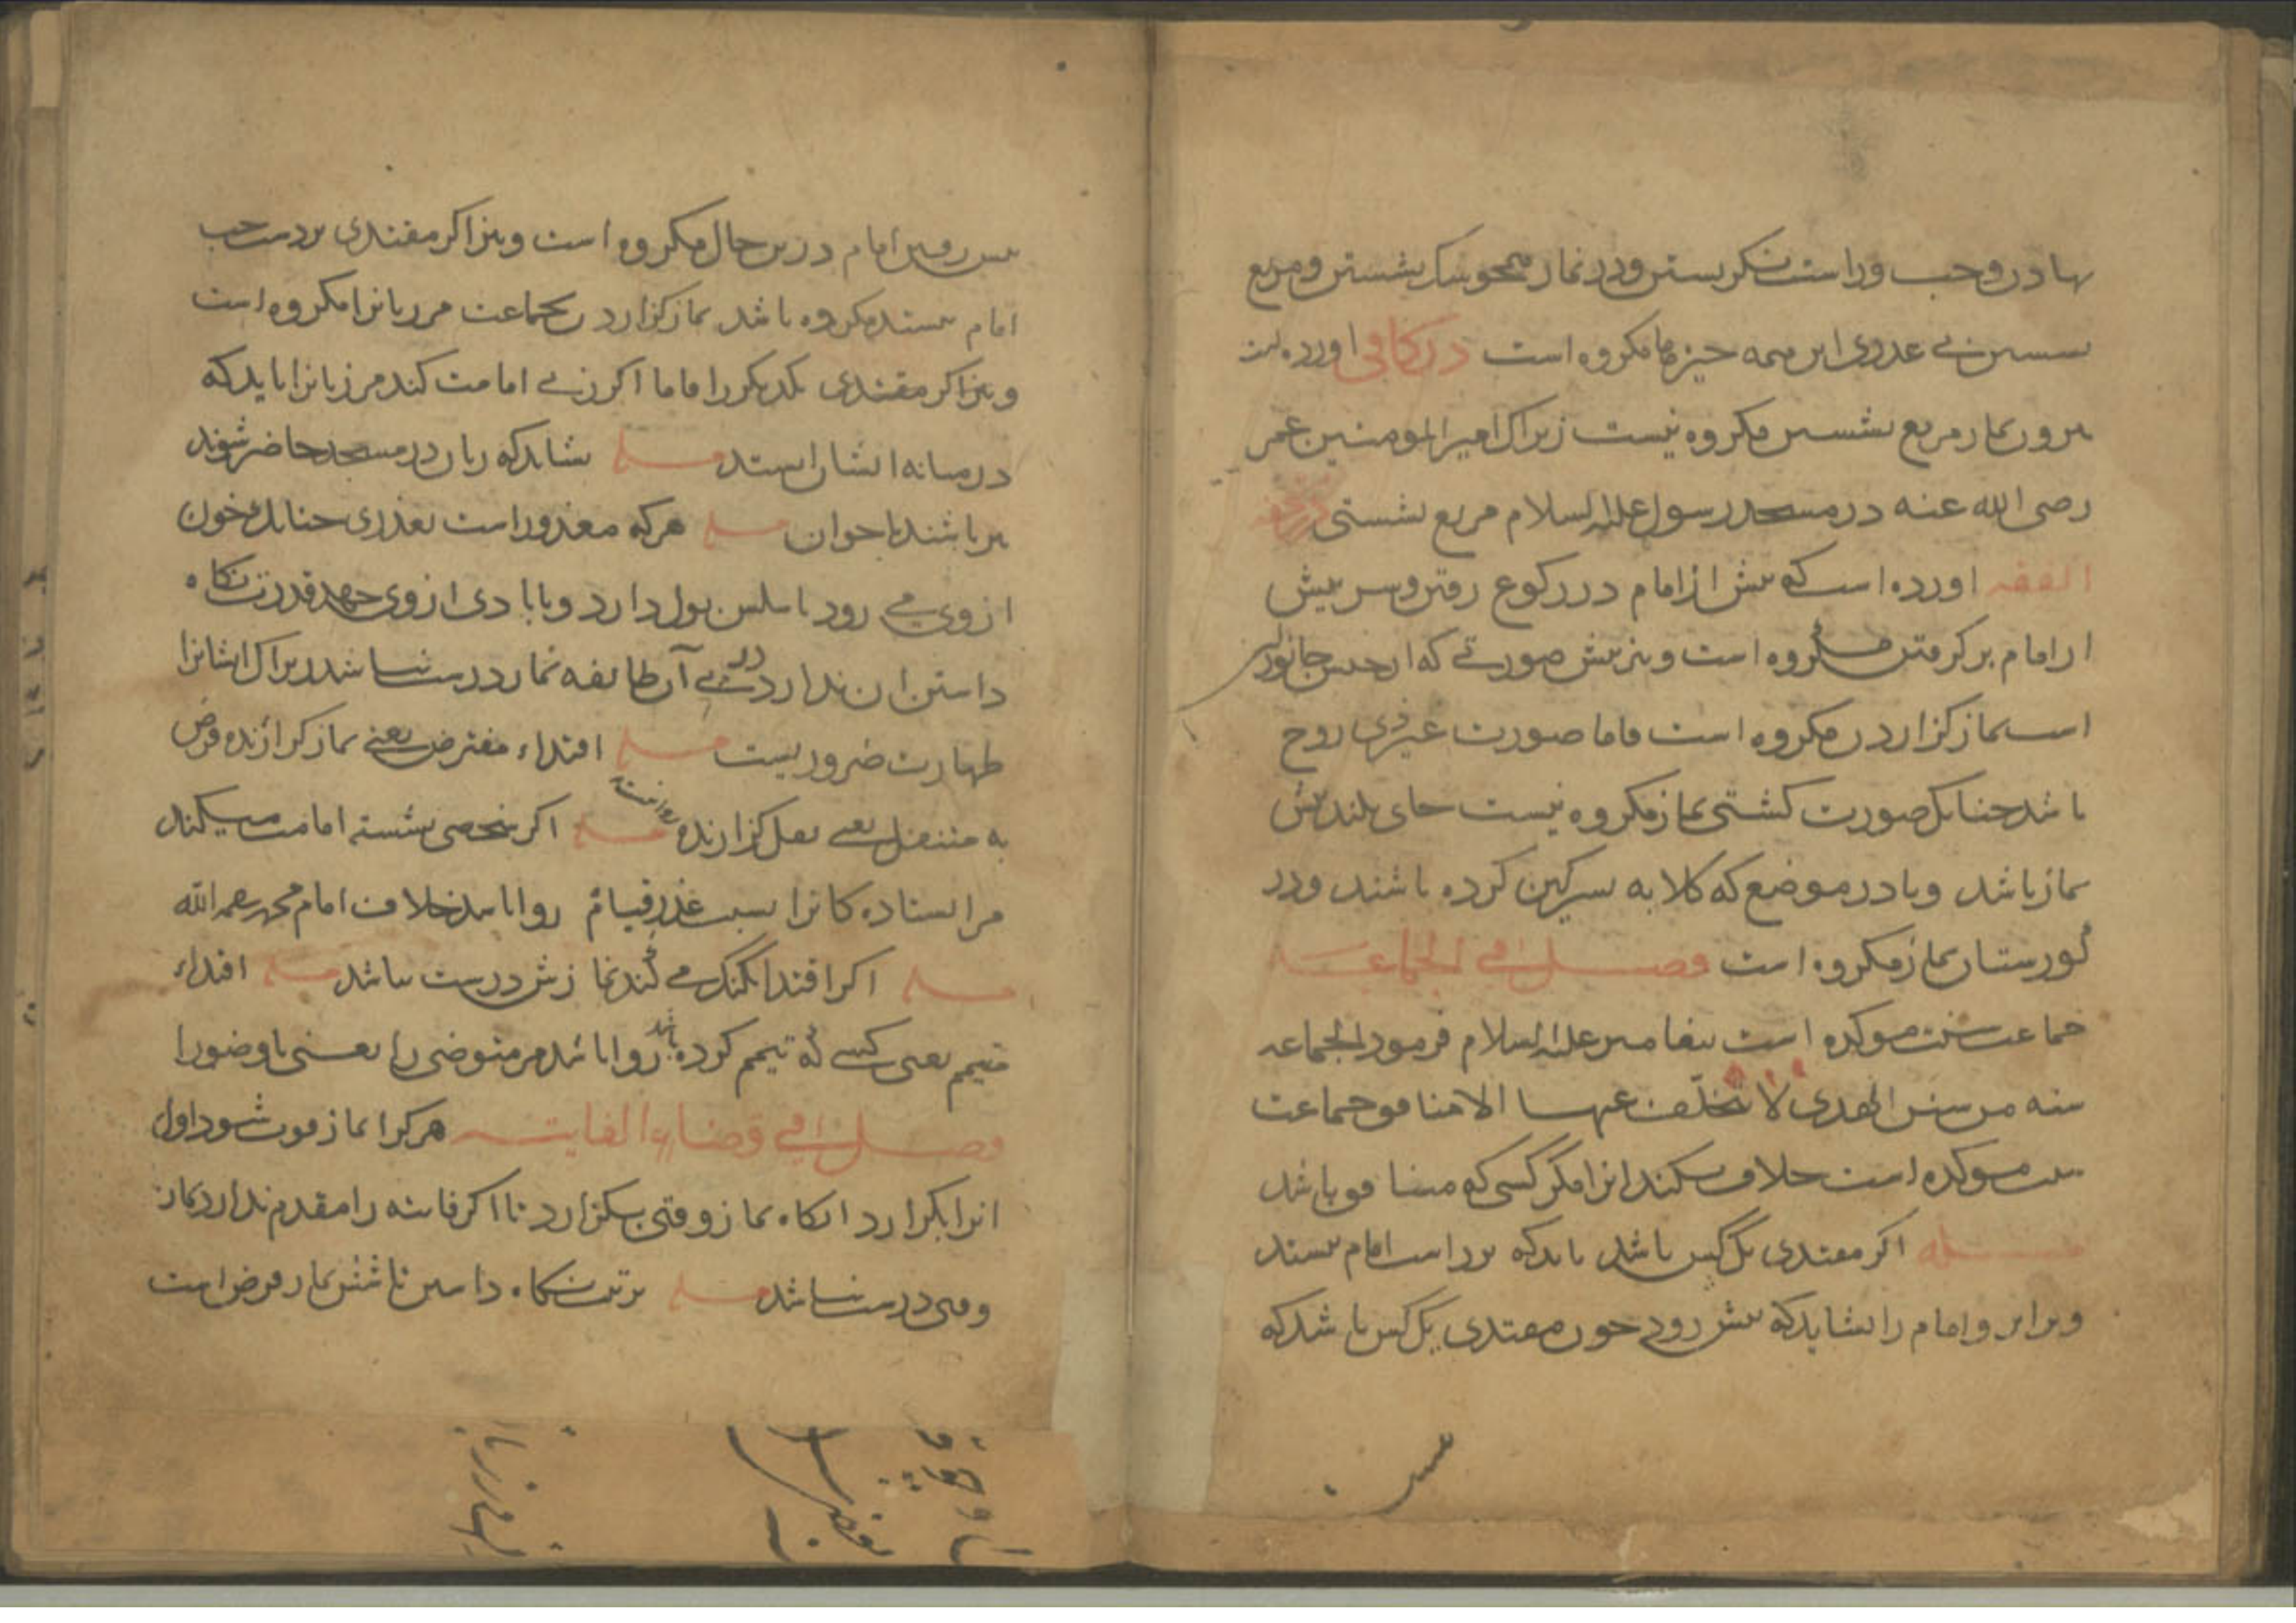 نهادن و چپ و راست نگریستن و در نماز همچو سک نشستن و مربع
نشستن بی عذری این همه چیزها مکروه است در کافی اورده است
بیرون نماز مربع نشستن مکروه نیست زیراک امیر المومنین عمر
رضی الله عنه در مسجد رسول علیه السلام مربع نشستی در
الفقه اورده است که پیش از امام در رکوع رفتن و سر پیش
از امام بر کرفتن مکروه است و نیز پیش صورتی که از جنس جانور
است نماز کزاردن مکروه است فاما صورت غیر ذی روح
باشد چنانک صورت کشتی نماز مکروه نیست جای بلند پیش
نماز باشد و یا در موضع که کلابه سرکین کرده باشند و در
کورستان نماز مکروه است فصل فی الجماعة
جماعت سنت موکده است پیغامبر علیه السلام فرمود الجماعه
سنه من سنن الهدی لا یتخلف عنها الا منافق جماعت
سنت موکده است خلاف نکند انرا مکر کسی که منافق باشد
مسله اکر مقتدی یک کس باشد باید که بر راست امام بیستد
و برابر و امام را نشاید که پیش رود چون مقتدی یک کس باشد که
پیش رفتن امام درین حال مکروه است و نیز اکر مقتدی بر دست چپ
امام بیستد مکروه باشد نماز کزاردن بجماعت مر زنانرا مکروه است
و نیز اکر مقتدی یکدیکر را فاما اکر زنی امامت کند مر زنانرا باید که
در میانه ایشان ایستد مسله نشاید که زنان در مسجد حاضر شوند
پیر باشند یا جوان مسله هر که معذور است بعذری چنانک خون
از وی می رود یا سلس بول دارد و یا بادی از وی جهد قدرت نکاه
داشتن ان ندارد در پی آن طایفه نماز درست نباشد زیراک ایشانرا
طهارت ضروریست مسله اقتداء مفترض یعنی نماز کزارنده فرض
به متنفل یعنی نفل کزارنده روا نیست مسله اکر شخصی نشسته امامت میکند
مر ایستاده کانرا بسبب عذر قیام روا باشد خلاف امام محمد رحمه الله
مسله اکر اقتدا بکنک می کند نمازش درست نباشد مسله اقتداء
متیمم یعنی کسی که تیمم کرده باشد روا باشد مر متوضی را یعنی با وضو را
فصل فی قضاء الفایته هر کرا نماز فوت شود اول
انرا بکزارد انکاه نماز وقتی بکزارد تا اکر فایته را مقدم ندارد نماز
وقتی درست نباشد مسله ترتیب نکاه داشتن تا شش نماز فرض است